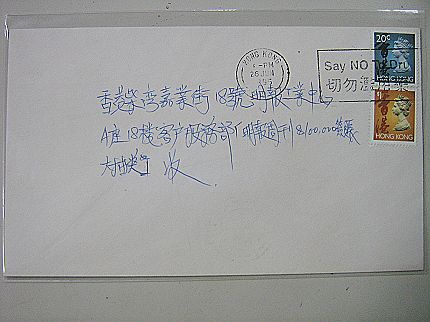 HONG KONG
-PM
26 JUN
Say NO To Dru
切勿
20c
香港
HONG KONG
香港
HONG KONG
香港柴湾嘉業街18號明報工業中心
A座18楼客户服務部「明報周刊$100,000
大抽獎」收